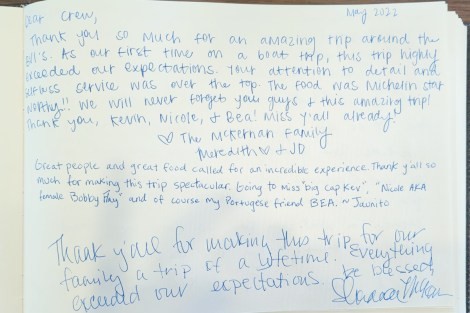 Dear Crew, May 2022
Thank you so much for an amazing trip around the
BVI's. As our first time on a boat trip, this trip highly
exceeded our expectations. Your attention to detail and
selfless service was over the top. The food was Michelin star
worthy!! We will never forget you guys & this amazing trip!
Thank you, Kevin, Nicole, & Bea! Miss y'all already!
♡ The McKernan Family
Meredith ♡ & JD
Great people and great food called for an incredible experience. Thank y'all so
much for making this trip spectacular. Going to miss "big cap Kev", "Nicole AKA
female Bobby Flay" and of course my Portugese friend BEA. ~ Juanito
Thank y'all for making this trip for our
family a trip of a lifetime. Everything
exceeded our expectations. Be blessed,